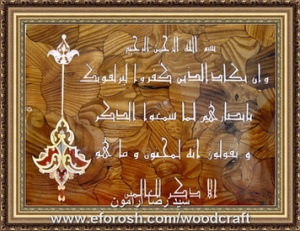 بسم الله الرحمن الرحیم
و ان یکاد الذین کفروا لیزلقونک
بابصارهم لما سمعوا الذکر
و یقولون انه لمجنون و ما هو
الا ذکر للعالمین
سید رضا آزمون
www.eforosh.com/woodcraft